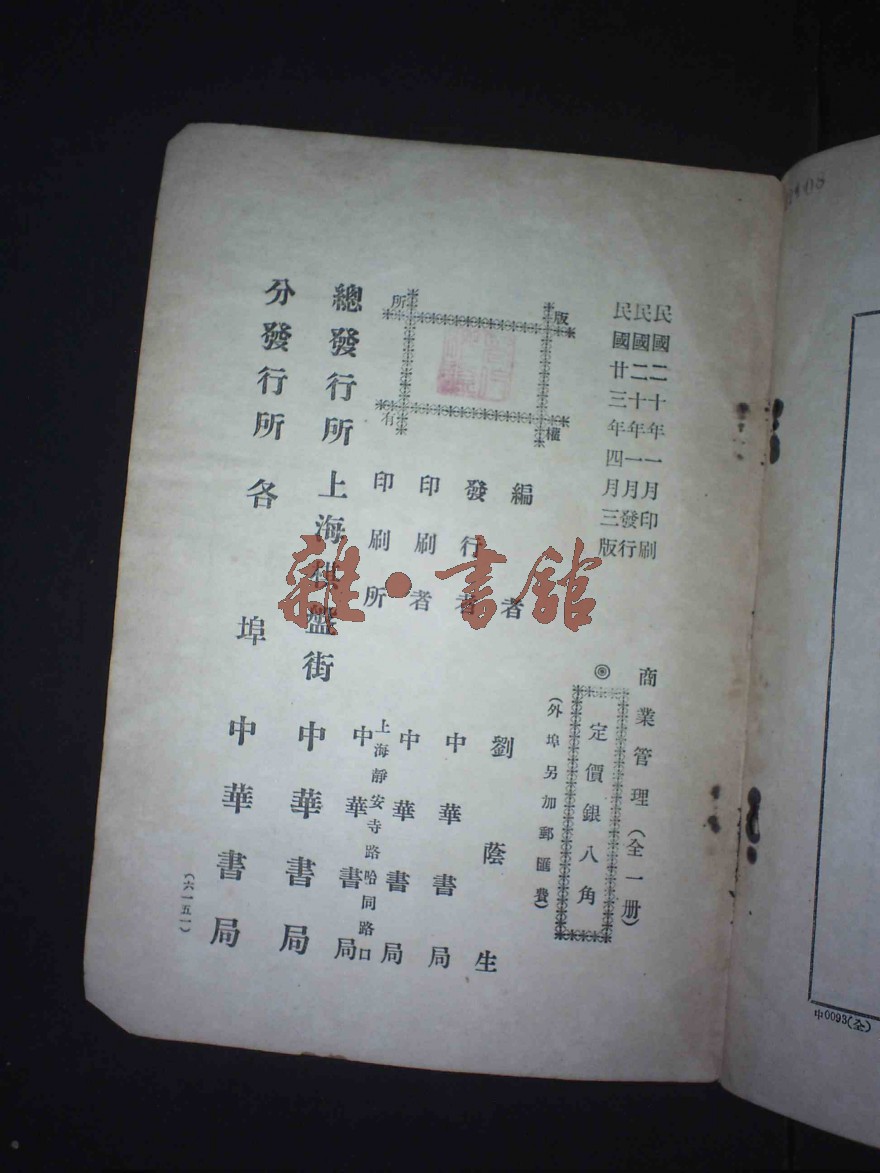 民國二十年一月印刷
民國二十年一月發行
民國廿三年四月三版
商業管理（全一册）
◎定價銀八角
（外埠另加郵匯費）
版權所有
編者 劉蔭生
發行者 中華書局
印刷者 中華書局
上海靜安寺路哈同路口
印刷所 中華書局
總發行所 上海棋盤街 中華書局
分發行所 各埠 中華書局
（六一五一）
雜·書館
中0093(全)